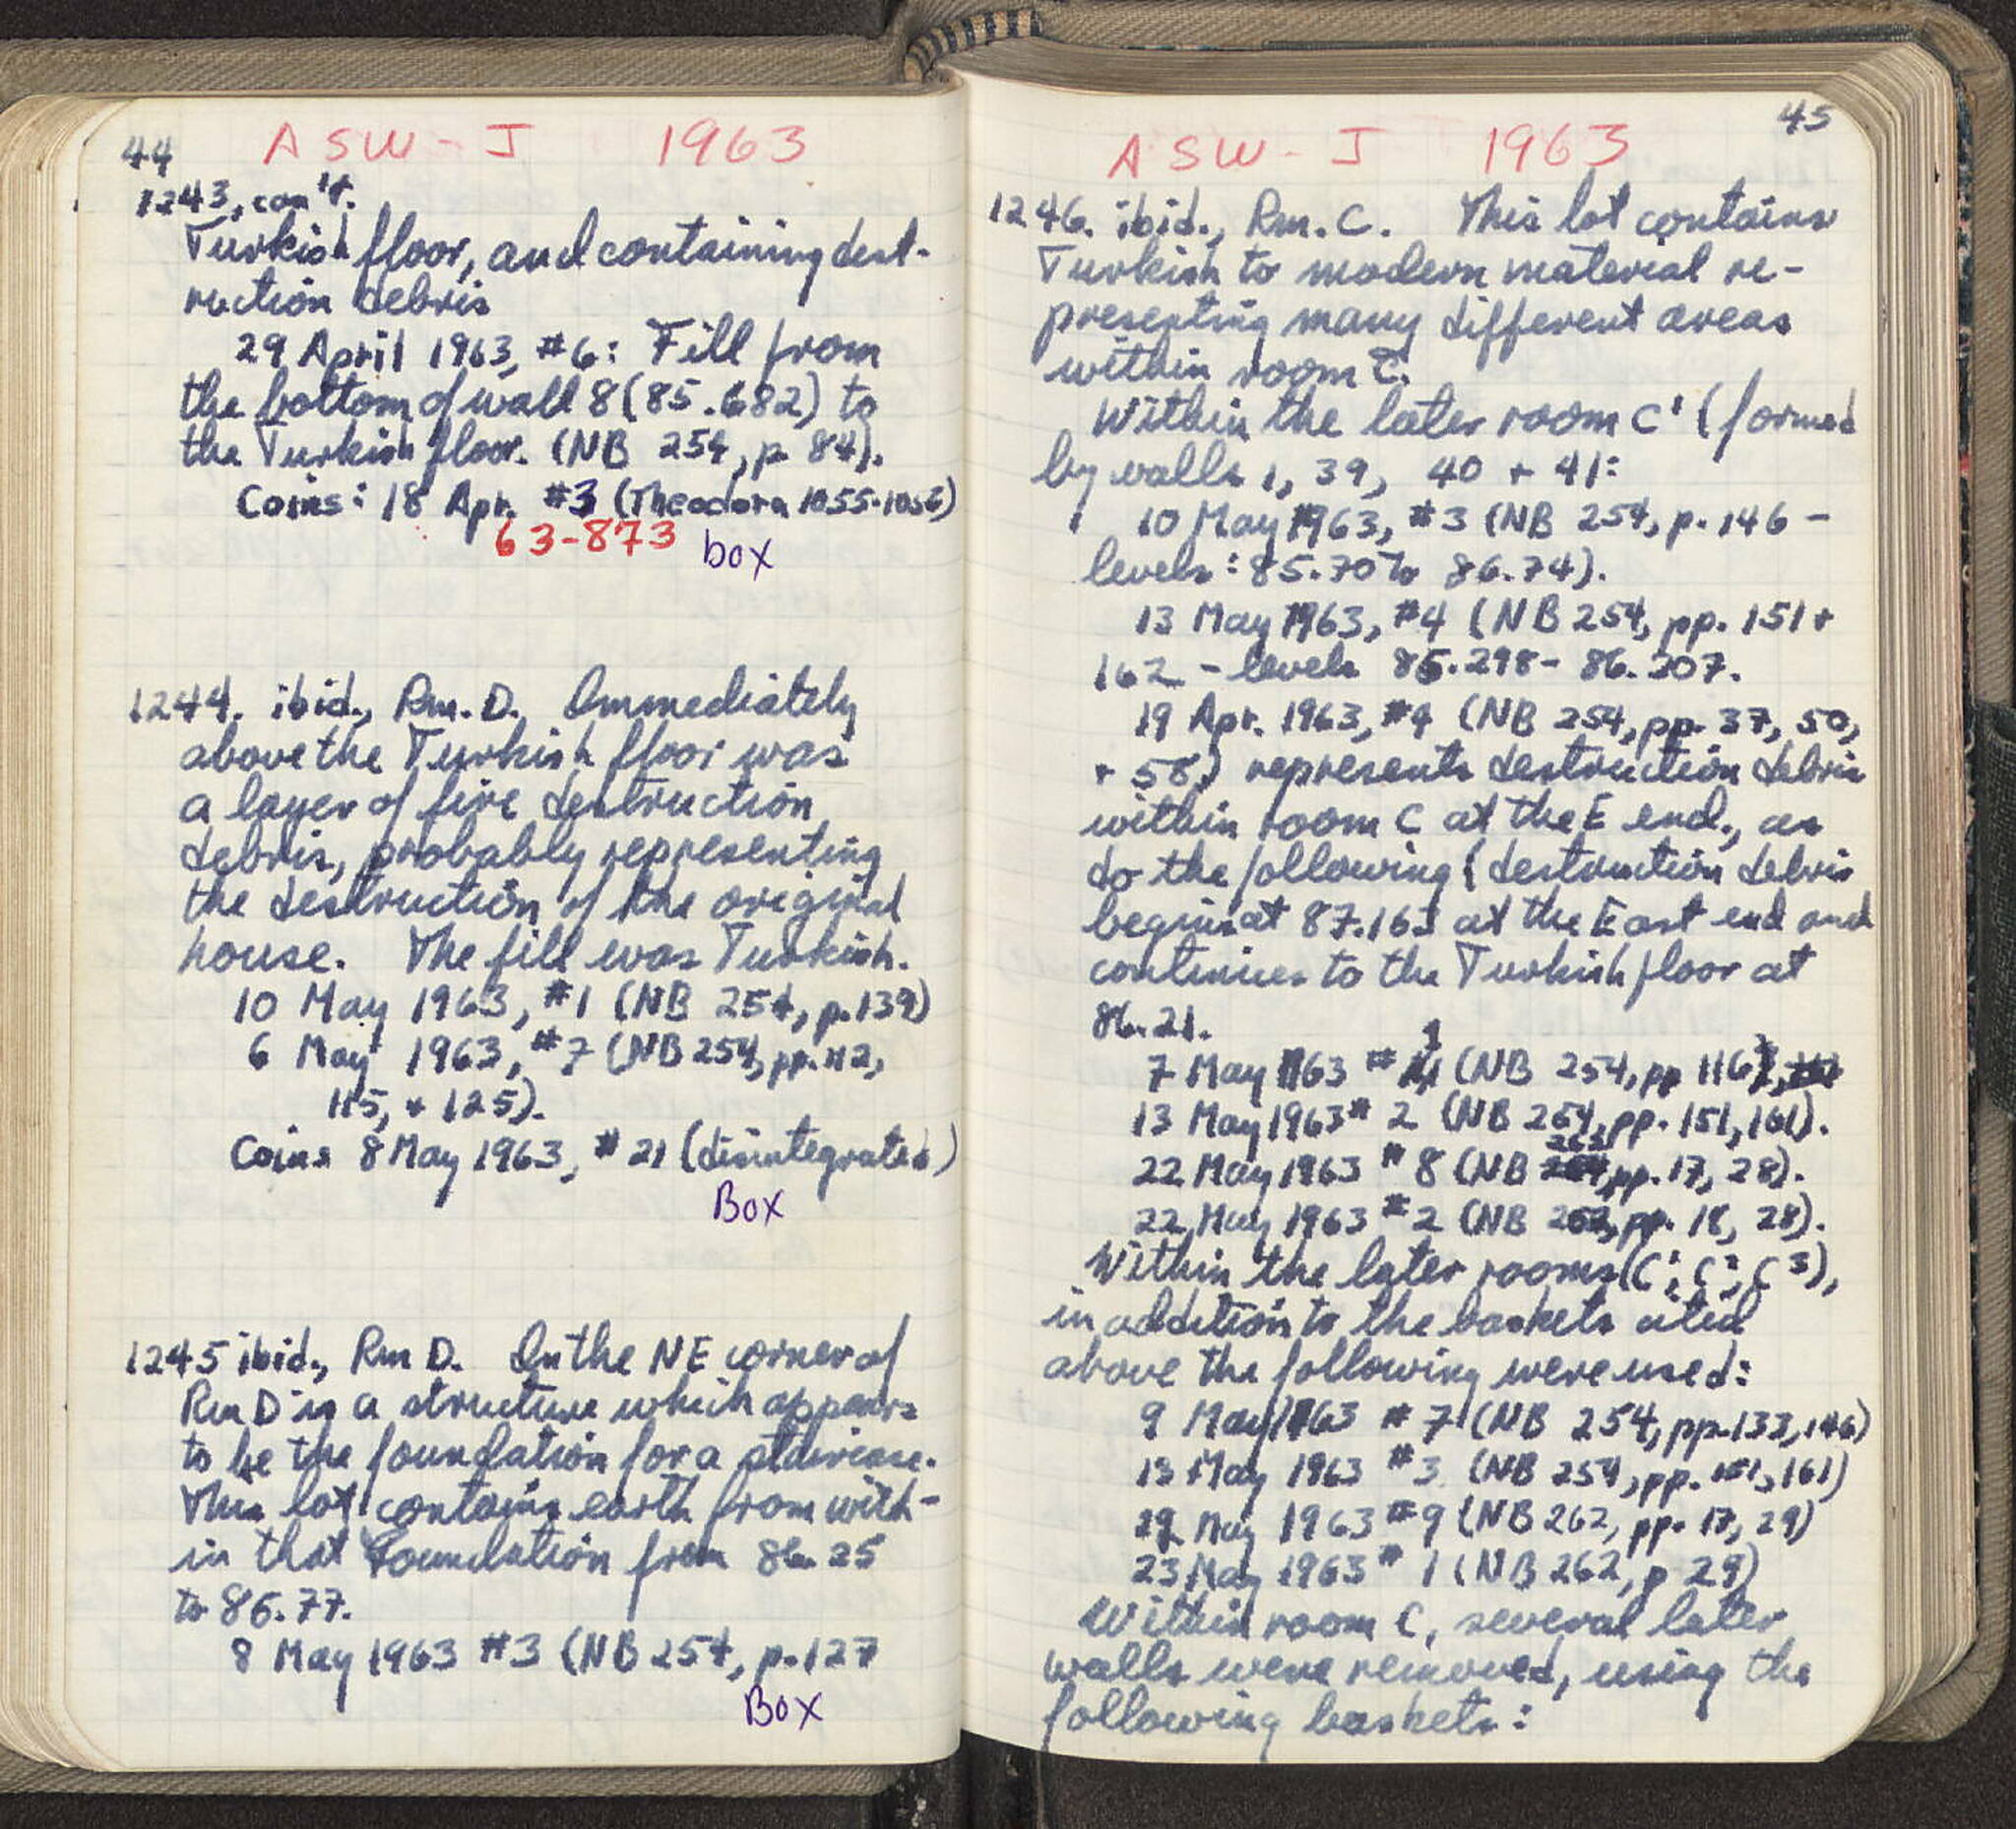 44 ASW-J 1963
1243, con't.
Turkish floor, and containing dest-
ruction debris
29 April 1963, #6: Fill from
the bottom of wall 8 (85.682) to
the Turkish floor. (NB 254, p 84).
Coins: 18 Apr. #3 (Theodora 1055-1056)
63-873 box
1244. ibid., Rm. D. Immediately
above the Turkish floor was
a layer of fire destruction
debris, probably representing
the destruction of the original
house. The fill was Turkish.
10 May 1963, #1 (NB 254, p. 139)
6 May 1963, #7 (NB 254, pp. 112,
115, + 125).
Coins 8 May 1963, #21 (disintegrated)
Box
1245 ibid., Rm D. In the NE corner of
Rm D is a structure which appears
to be the foundation for a staircase.
This lot contains earth from with-
in that foundation from 86.25
to 86.77.
8 May 1963 #3 (NB 254, p. 127
Box
ASW-J 1963 45
1246. ibid., Rm. C. This lot contains
Turkish to modern material re-
presenting many different areas
within room C.
Within the later room C' (formed
by walls 1, 39, 40 + 41:
10 May 1963, #3 (NB 254, p. 146 -
levels: 85.70 to 86.74).
13 May 1963, #4 (NB 254, pp. 151 +
162 - levels 85.298 - 86.307.
19 Apr. 1963, #4 (NB 254, pp. 37, 50,
+ 58) represents destruction debris
within room C at the E end., as
do the following (destruction debris
begins at 87.163 at the East end and
continues to the Turkish floor at
86.21.
7 May 1963 # (NB 254, pp 116
13 May 1963 # 2 (NB 254, pp. 151, 161).
22 May 1963 # 8 (NB 262, pp. 17, 28).
22 May 1963 # 2 (NB 262, pp. 18, 28).
Within the later rooms (C¹, C², C³),
in addition to the baskets cited
above the following were used:
9 May 1963 # 7 (NB 254, pp. 133, 146)
13 May 1963 # 3 (NB 254, pp. 151, 161)
May 1963 # 9 (NB 262, pp. 17, 29)
23 May 1963 # 1 (NB 262, p 29)
Within room C, several later
walls were removed, using the
following baskets: